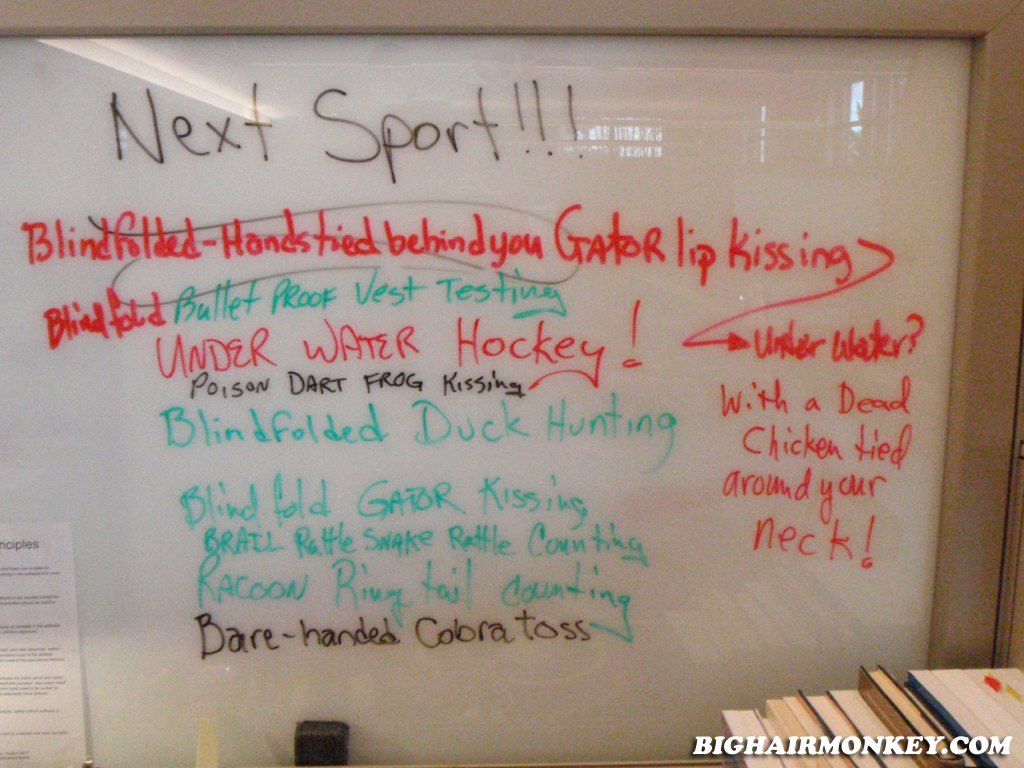 Next Sport!!!
Blindfolded-Hands tied behind you GATOR lip kissing
Blindfold Bullet PROOF Vest Testing
UNDER WATER Hockey!
Under Water?
POISON DART FROG Kissing
With a Dead
Chicken tied
around your
neck!
Blindfolded Duck Hunting
Blindfold GATOR Kissing
BRAIL Rattle SNAKE Rattle Counting
RACOON Ring tail counting
Bare-handed Cobra toss
nciples
BIGHAIRMONKEY.COM